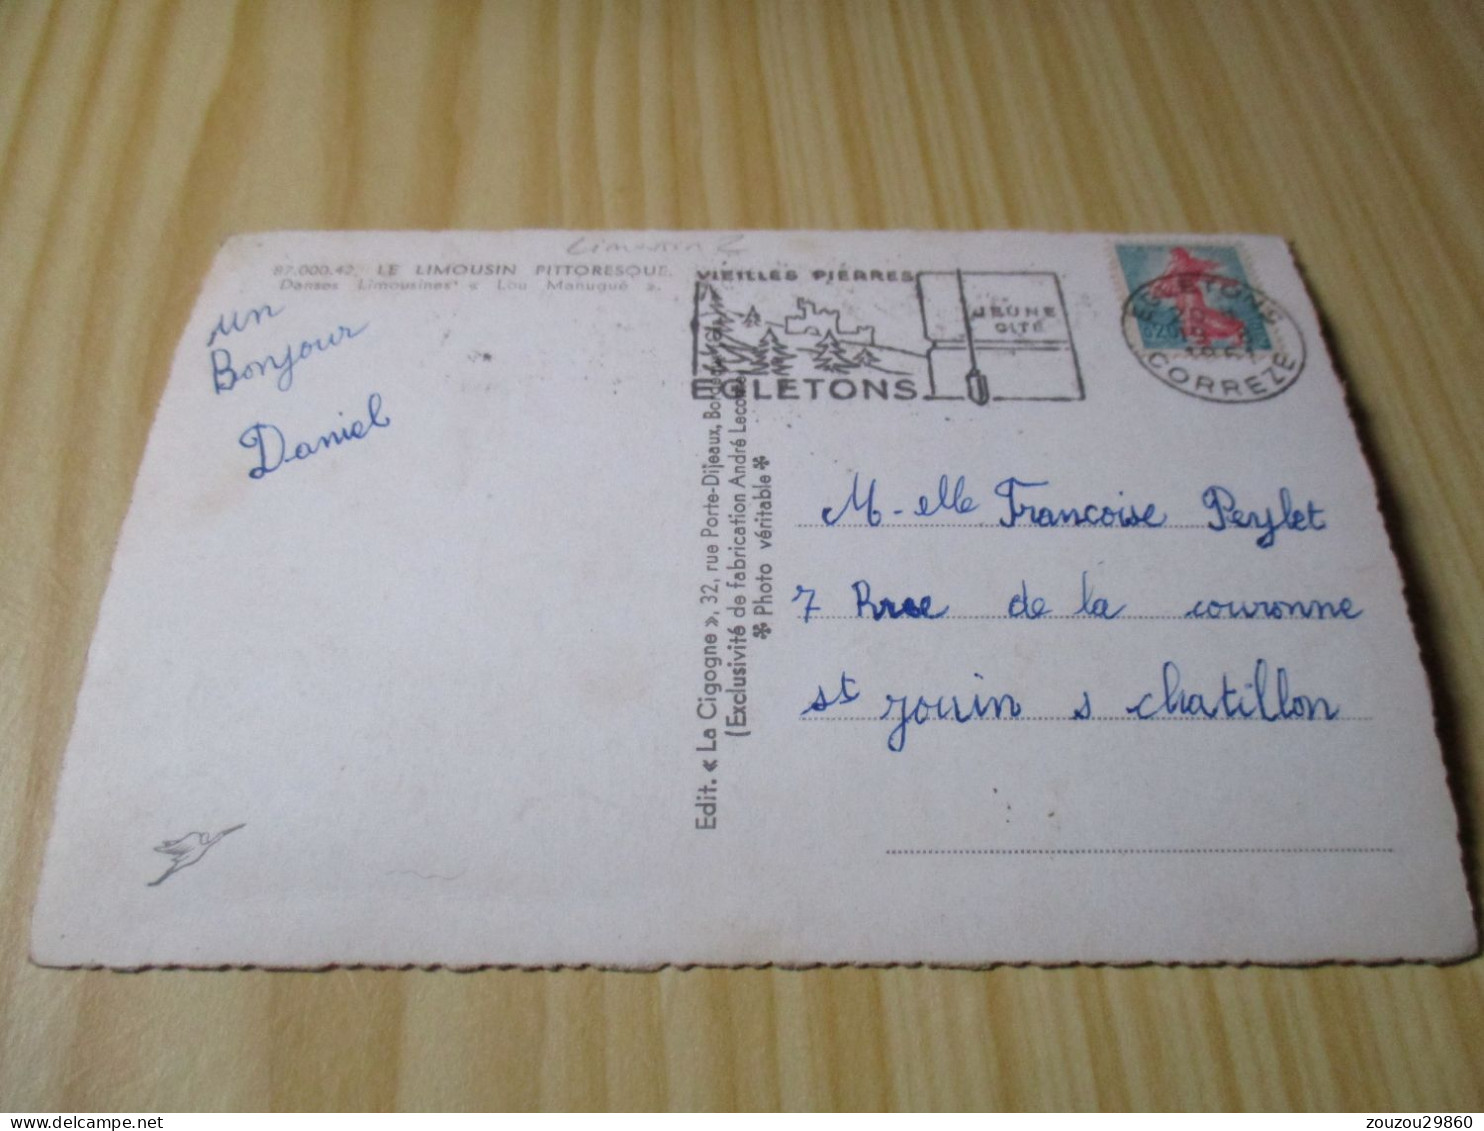 Limousin 2
87.000.42. LE LIMOUSIN PITTORESQUE.
Danses Limousines « Lou Manugué ».
un
Bonjour
Daniel
VIEILLES PIERRES
JEUNE
CITÉ
EGLETONS
EGLETONS
CORREZE
Edit. « La Cigogne », 32, rue Porte-Dijeaux, Bordeaux
(Exclusivité de fabrication André Leconte)
✻ Photo véritable ✻
M-elle Francoise Peylet
7 Rue de la couronne
st jouin s chatillon
zouzou29860